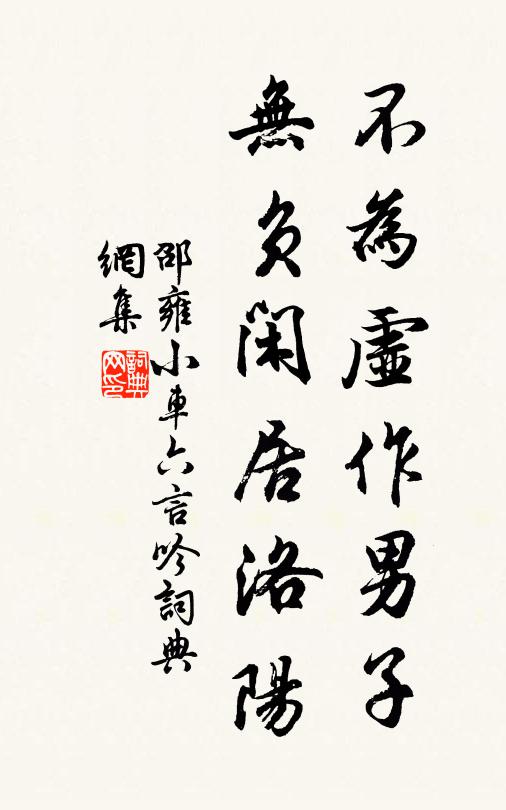 不為虛作男子
無負閑居洛陽
邵雍小車六言吟詞典
網集
詞典
网印